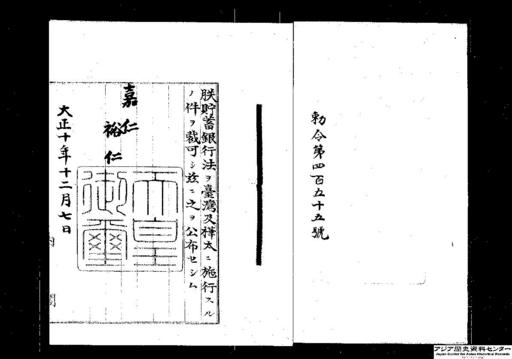 勅令第四百五十五號
朕貯蓄銀行法ヲ臺灣及樺太ニ施行スル
ノ件ヲ裁可シ玆ニ之ヲ公布セシム
嘉仁
裕仁
天皇御璽
大正十年十二月七日
内閣
アジア歴史資料センター
Japan Center for Asian Historical Records